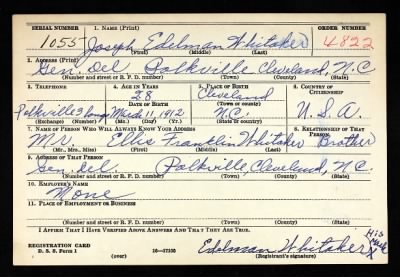 SERIAL NUMBER 1. NAME (Print) ORDER NUMBER
1055 Joseph Edelman Whitaker 4822
(First) (Middle) (Last)
2. ADDRESS (Print)
Gen. Del Polkville Cleveland, N.C.
(Number and street or R. F. D. number) (Town) (County) (State)
3. TELEPHONE 4. AGE IN YEARS 5. PLACE OF BIRTH 6. COUNTRY OF CITIZENSHIP
28 Cleveland
DATE OF BIRTH (Town or county)
Polkville 3 March 11, 1912 N.C. U.S.A.
(Exchange) (Number) (Mo.) (Day) (Yr.) (State or country)
7. NAME OF PERSON WHO WILL ALWAYS KNOW YOUR ADDRESS 8. RELATIONSHIP OF THAT PERSON
Mr. Ellis Franklin Whitaker Brother
(Mr., Mrs., Miss) (First) (Middle) (Last)
9. ADDRESS OF THAT PERSON
Gen. Del. Polkville, Cleveland, N.C.
(Number and street or R. F. D. number) (Town) (County) (State)
10. EMPLOYER'S NAME
None
11. PLACE OF EMPLOYMENT OR BUSINESS
(Number and street or R. F. D. number) (Town) (County) (State)
I AFFIRM THAT I HAVE VERIFIED ABOVE ANSWERS AND THAT THEY ARE TRUE.
His
REGISTRATION CARD Edelman Whitaker X Mark
D. S. S. Form 1 (over) 16—17105 (Registrant's signature)